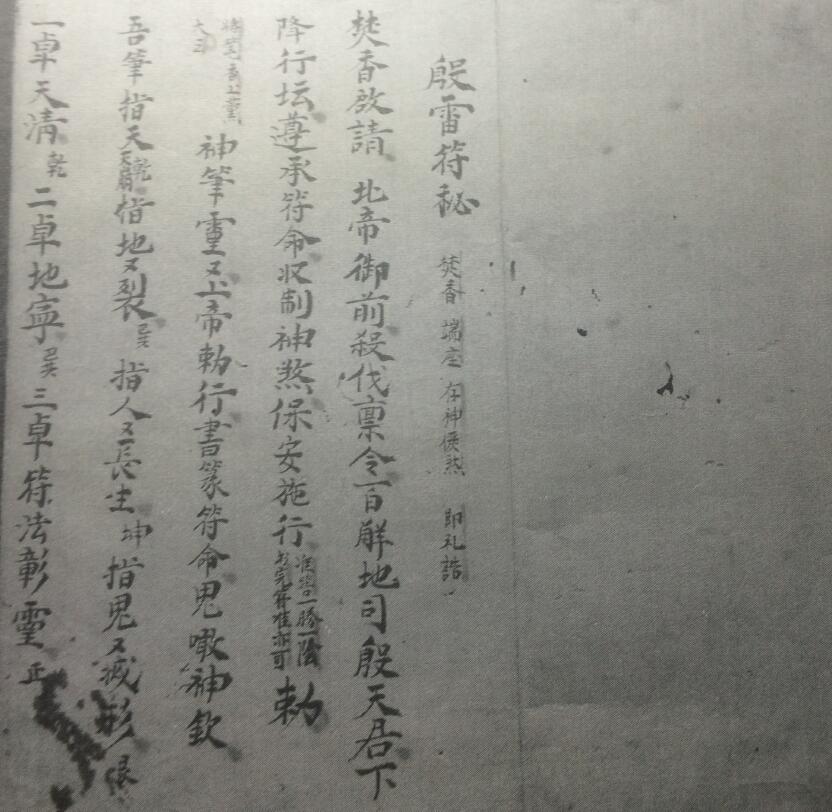 殷雷符秘 焚香 端座 存神 即礼誥
焚香啟請 北帝御前殺伐禀令百解地司殷天君下
降行坛遵承符命収制神煞保安施行 勅
神筆靈又上帝勅行書篆符命鬼嗷神欽
吾筆指天乾指地又裂指人又長生坤指鬼又滅形
一卓天清乾二卓地寧三卓符法彰靈